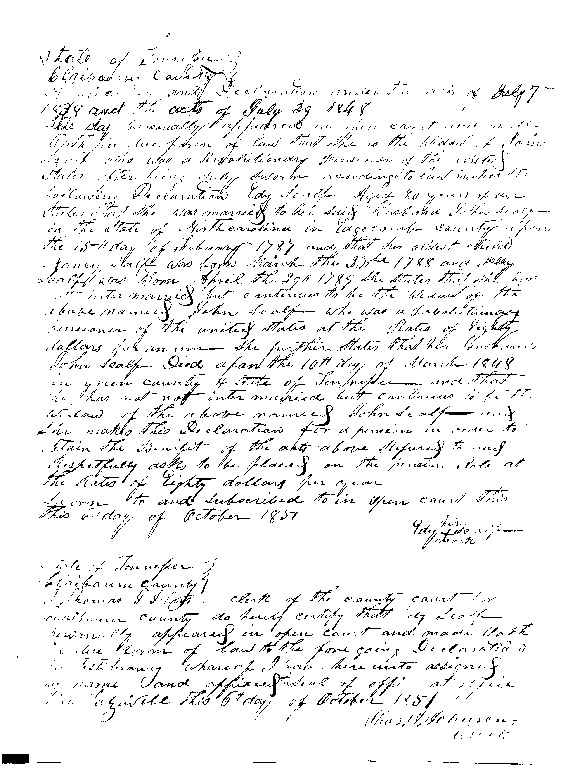 State of Tennessee
Claibourn County
and Declaration under the acts of July 7
1838 and the acts of July 29 1848
This day personally appeared in open court and made
Oath in due form of law that she is the widow of John
Scalf who was a Revolutionary pensioner of the united
States after being duly sworn according to law makes the
following Declaration Edy Scalf Aged 80 years
States that she was married to her said husband John Scalf
in the state of North carolina in Edgecombe county upon
the 15th day of February 1787 and that her oldest child
was born March the 1788 and
Scalf was born April the 29th 1789 she states that she has
not intermarried but continues to be the widow of the
above named John Scalf who was a Revolutionary
pensioner of the united states at the Rates of Eighty
dollars per annum She further states that her husband
John Scalf Died upon the 10th day of March 1848
in county & State of Tennessee and that
she has not not intermarried but continues to be the
widow of the above named John Scalf and
She makes this Declaration for a pension in order to
obtain the Benefit of the acts above Refered to and
Respetfully asks to be placed on the pension Role at
the Rates of Eighty dollars per year
Sworn to and subscribed to in open court This
this 6 day of October 1851
Edy her Scalf
mark
State of Tennessee
Claibourn County
I Thomas clerk of the county court for
claibourn county do hereby certify that Edy Scalf
personally appeared in open court and made Oath
in due Form of Law to the fore going Declaration
In Testimony whereof I have here unto assigned
my name and affixed Seal of office at office
in Tazwell this 6th day of October 1851
Johnson
clerk